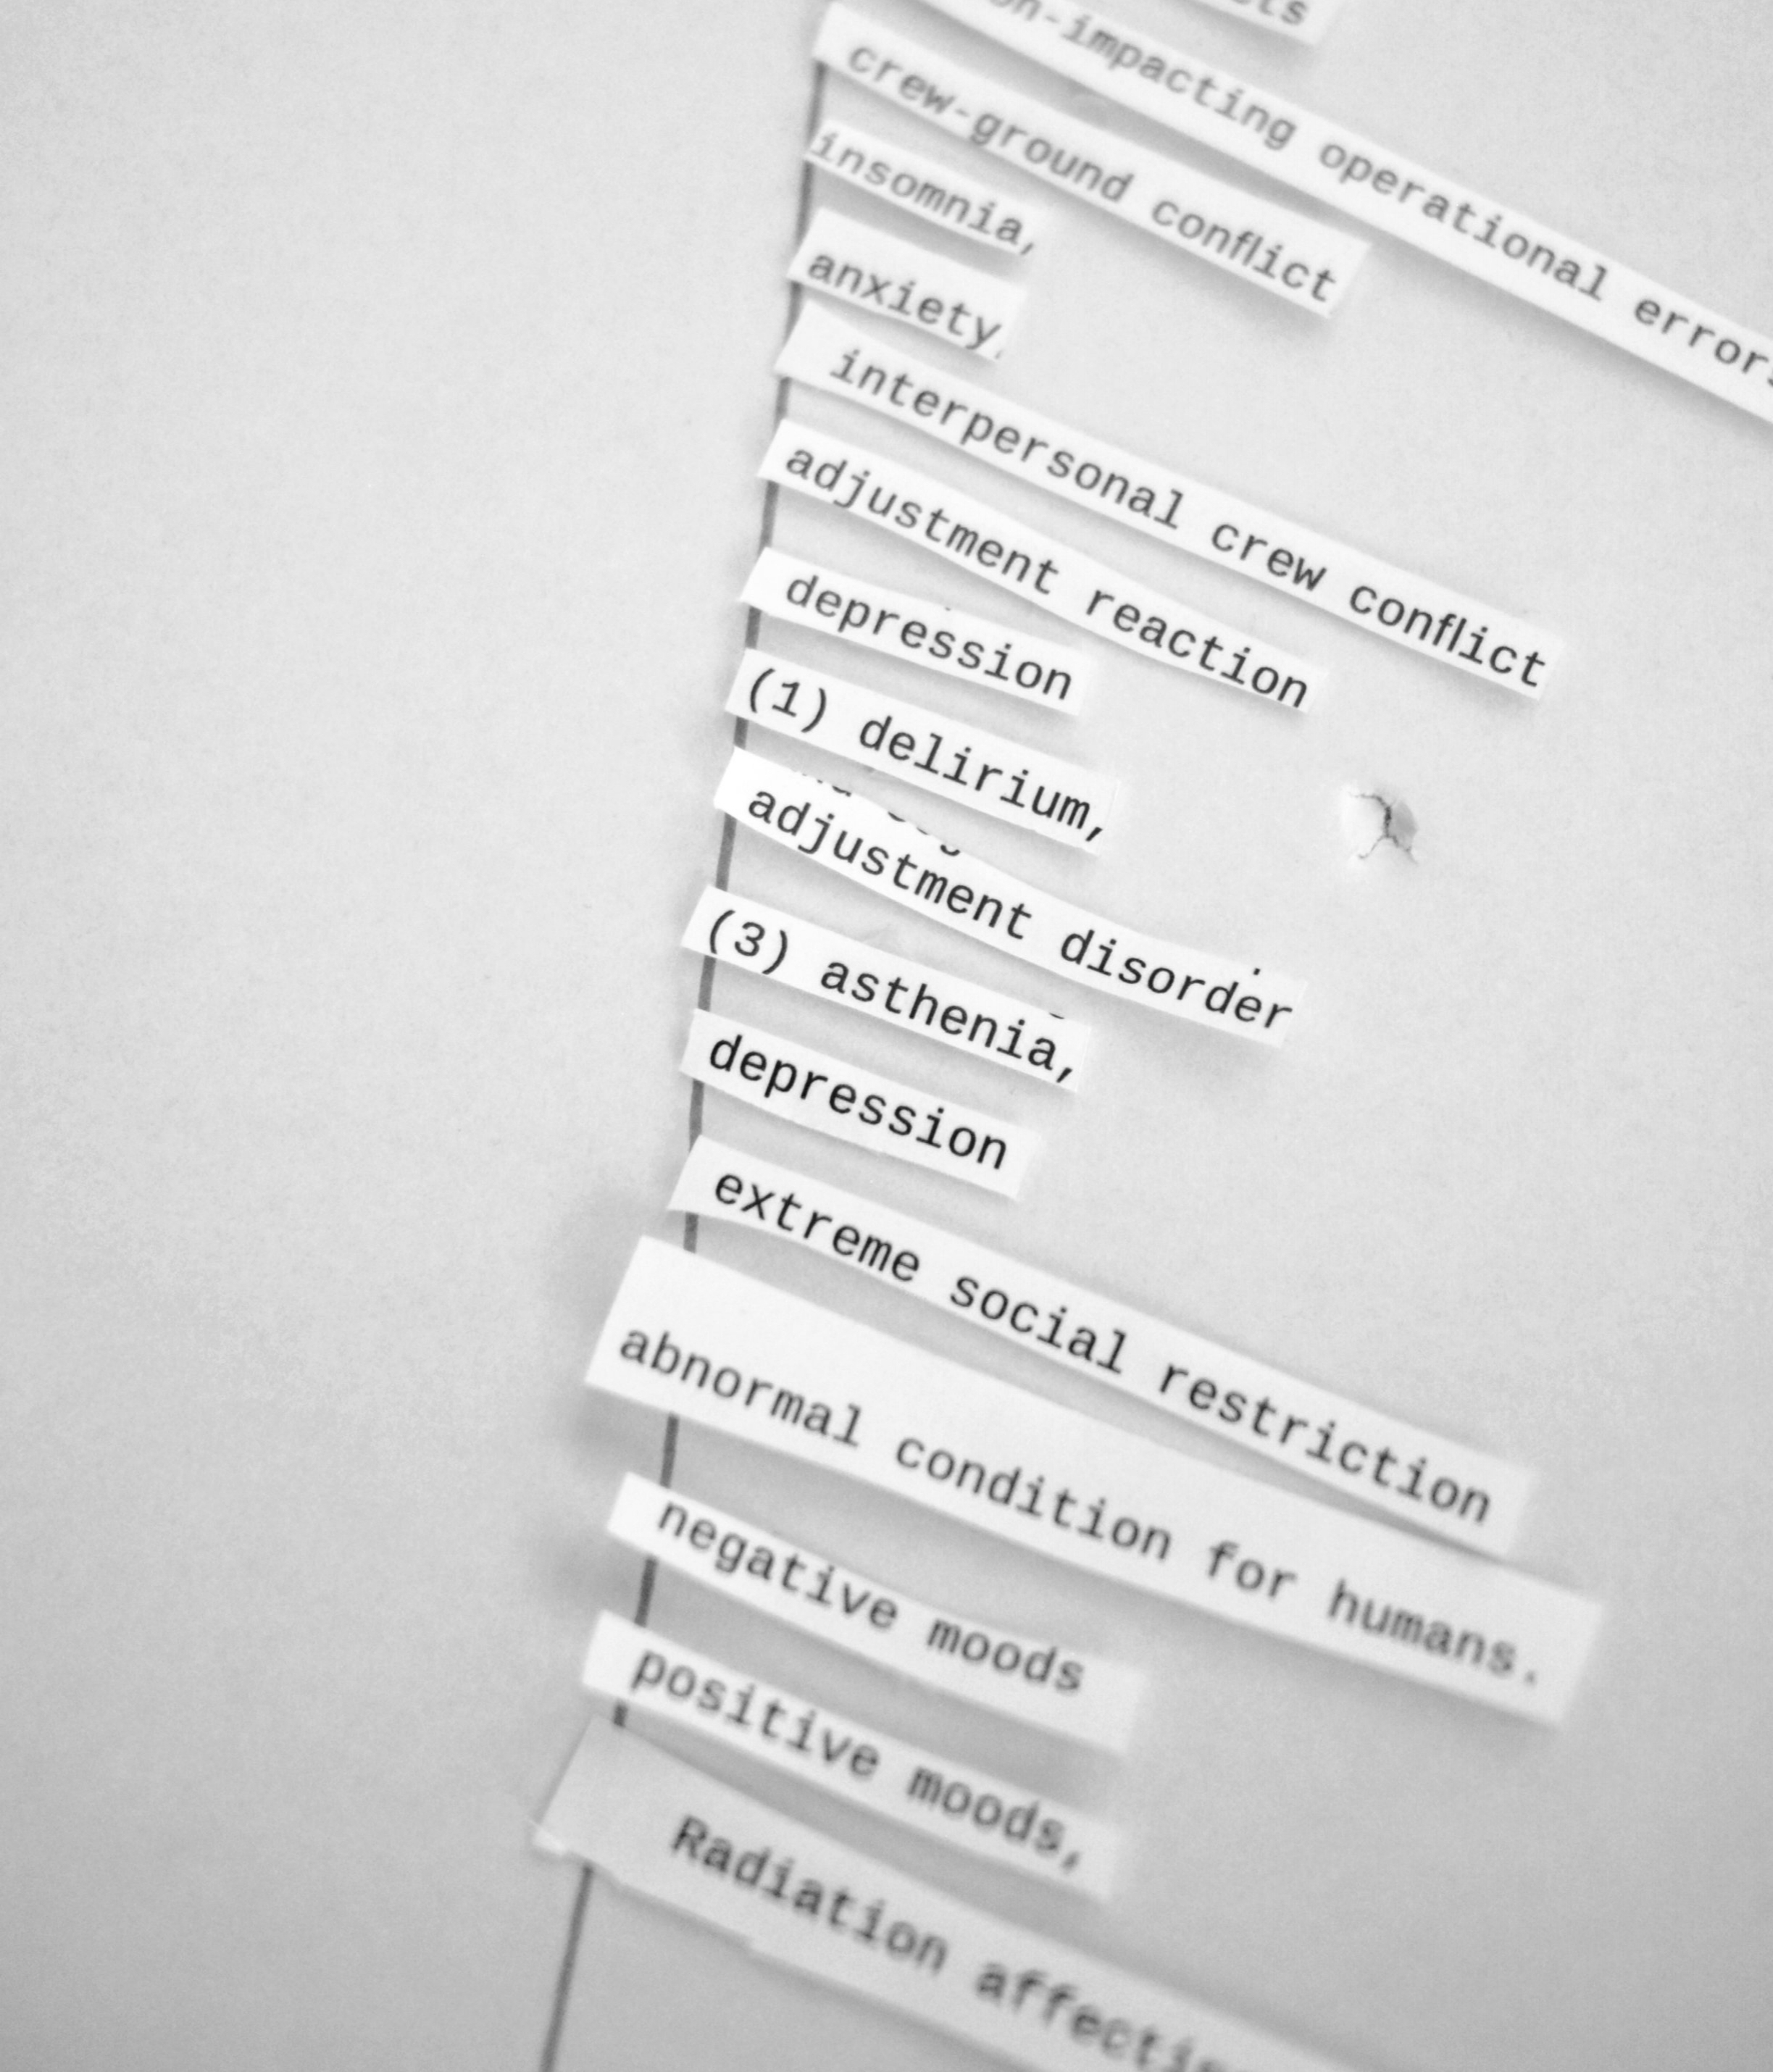 impacting operational errors
crew-ground conflict
insomnia,
anxiety,
interpersonal crew conflict
adjustment reaction
depression
(1) delirium,
adjustment disorder
(3) asthenia,
depression
extreme social restriction
abnormal condition for humans.
negative moods
positive moods,
Radiation